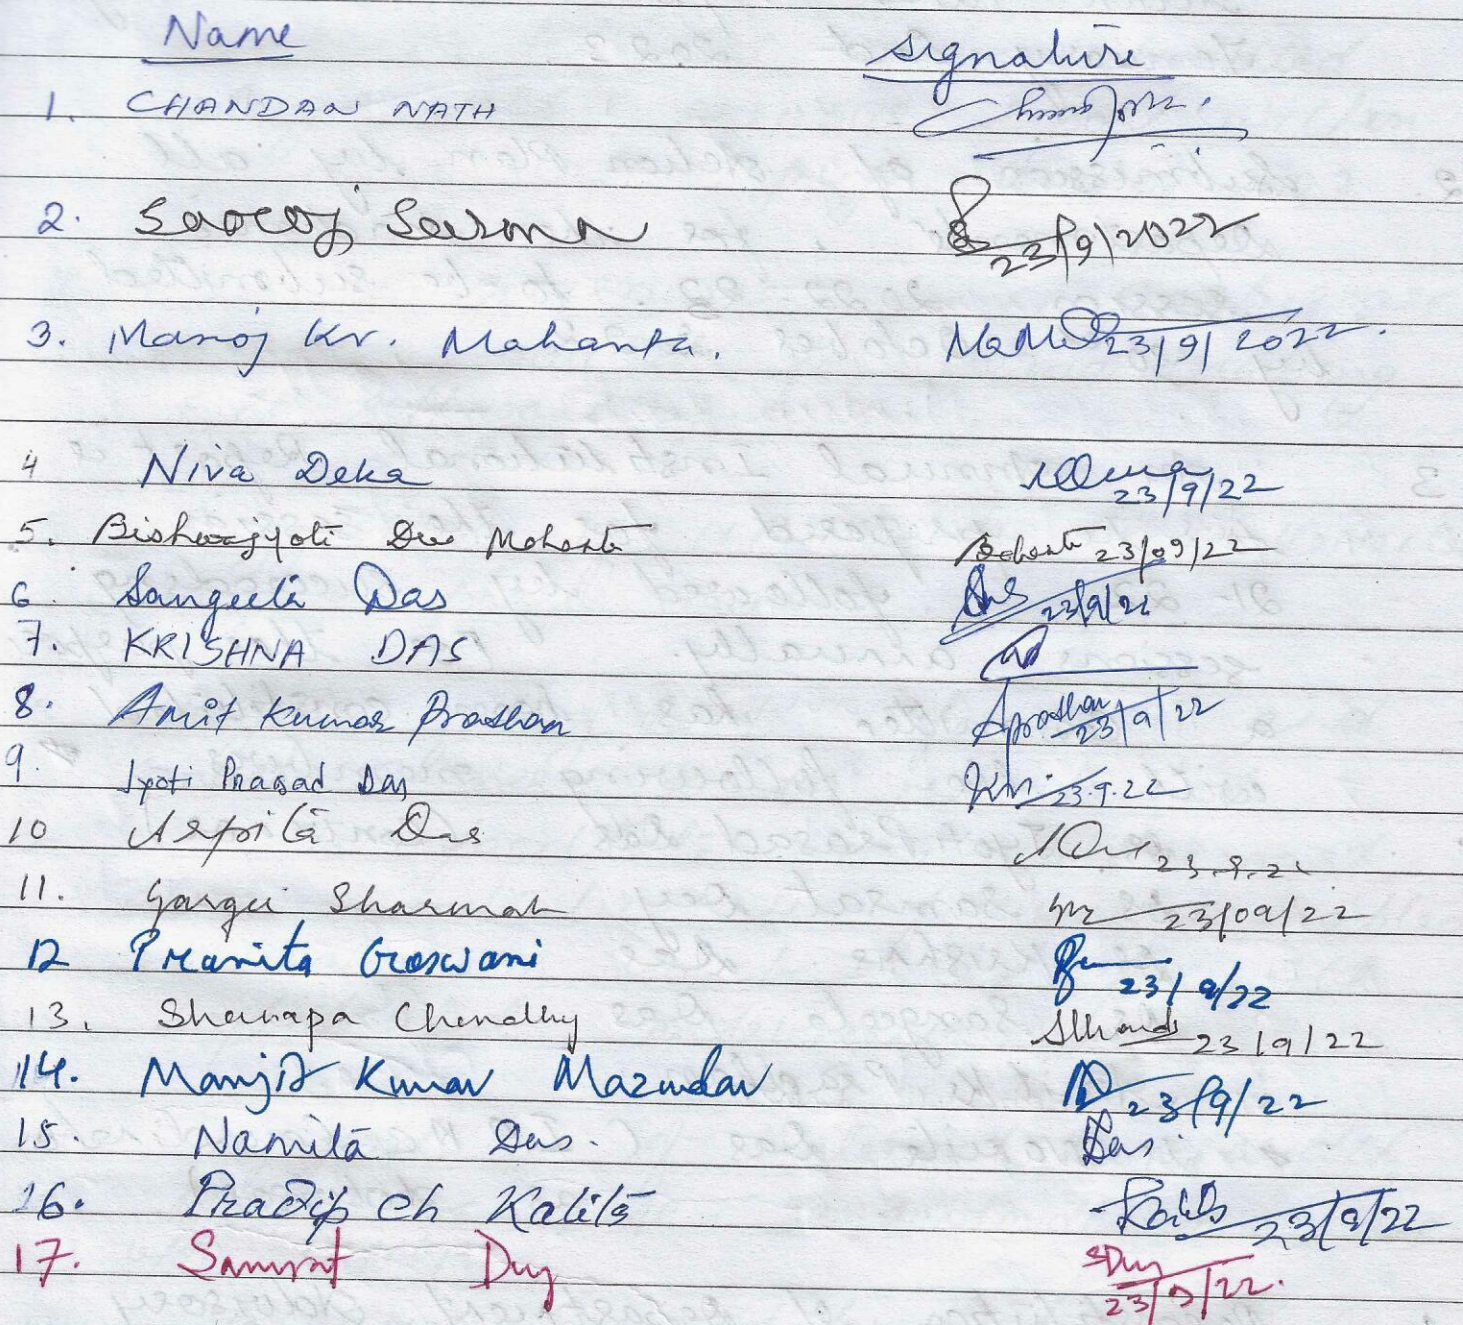 Name Signature
1. CHANDAN NATH
2. Saroj Sarma 23/9/2022
3. Manoj Kr. Mahanta. 23/9/2022.
4 Niva Deka 23/9/22
5. Bishwajyoti Dev Mohanta 23/09/22
6. Sangeeta Das Das 23/9/22
7. KRISHNA DAS
8. Amit Kumar Pradhan Apradhan 23/9/22
9. Jyoti Prasad Das 23.9.22
10 Arpita Das 23.9.22
11. Gargi Sharmah 23/09/22
12 Pranita Goswami 23/9/22
13. Sharapa Choudhury 23/9/22
14. Manjit Kumar Mazumdar 23/9/22
15. Namita Das. Das.
16. Pradip Ch Kalita Kalita 23/9/22
17. Samrat Dey SDey 23/9/22.